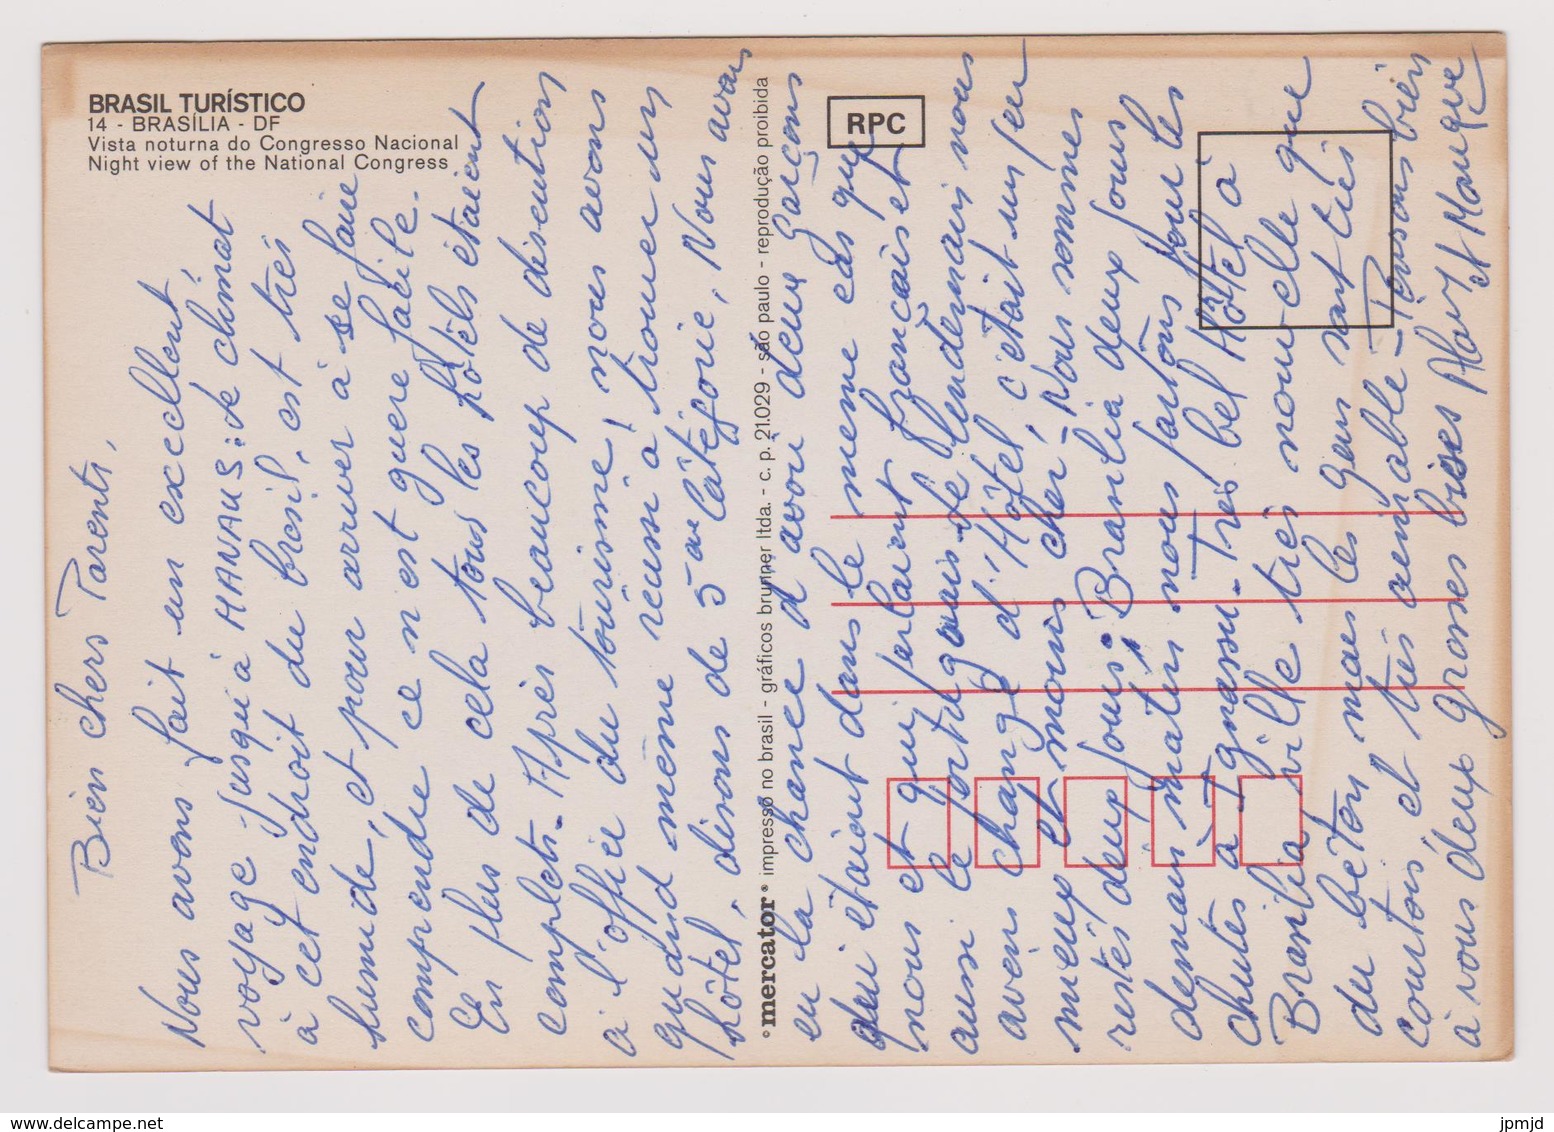 BRASIL TURÍSTICO
14 - BRASÍLIA - DF
Vista noturna do Congresso Nacional
Night view of the National Congress
Bien chers Parents,
Nous avons fait un excellent
voyage jusqu'à MANAUS: le climat
à cet endroit du brésil, est très
humide, et pour arriver à se faire
comprendre ce n est guère facile.
En plus de cela tous les hôtels étaient
complets - Après beaucoup de discution
à l'office du tourisme, nous avons
quand même réussi à trouver un
hôtel, disons de 5ème câtégorie, Nous avons
eu la chance d'avoir deux garçons
qui étaient dans le meme cas que
nous et qui parlaient français et
aussi le portugais - le lendemain nous
avons changé d'Hôtel, c'était un peu
mieux et moins cher, Nous sommes
restés deux jours, Brasilia deux jours
demain matin nous partons pour les
chutes à Iguassu - Très bel Hôtel à
Brasilia ville très nouvelle que
du béton mais les gens sont très
courtois, et très aimable - Pensons bien
à vous deux grosses bises et Monique
°mercator® impresso no brasil - gráficos brunner ltda. - c. p. 21.029 - são paulo - reprodução proibida
RPC
jpmjd